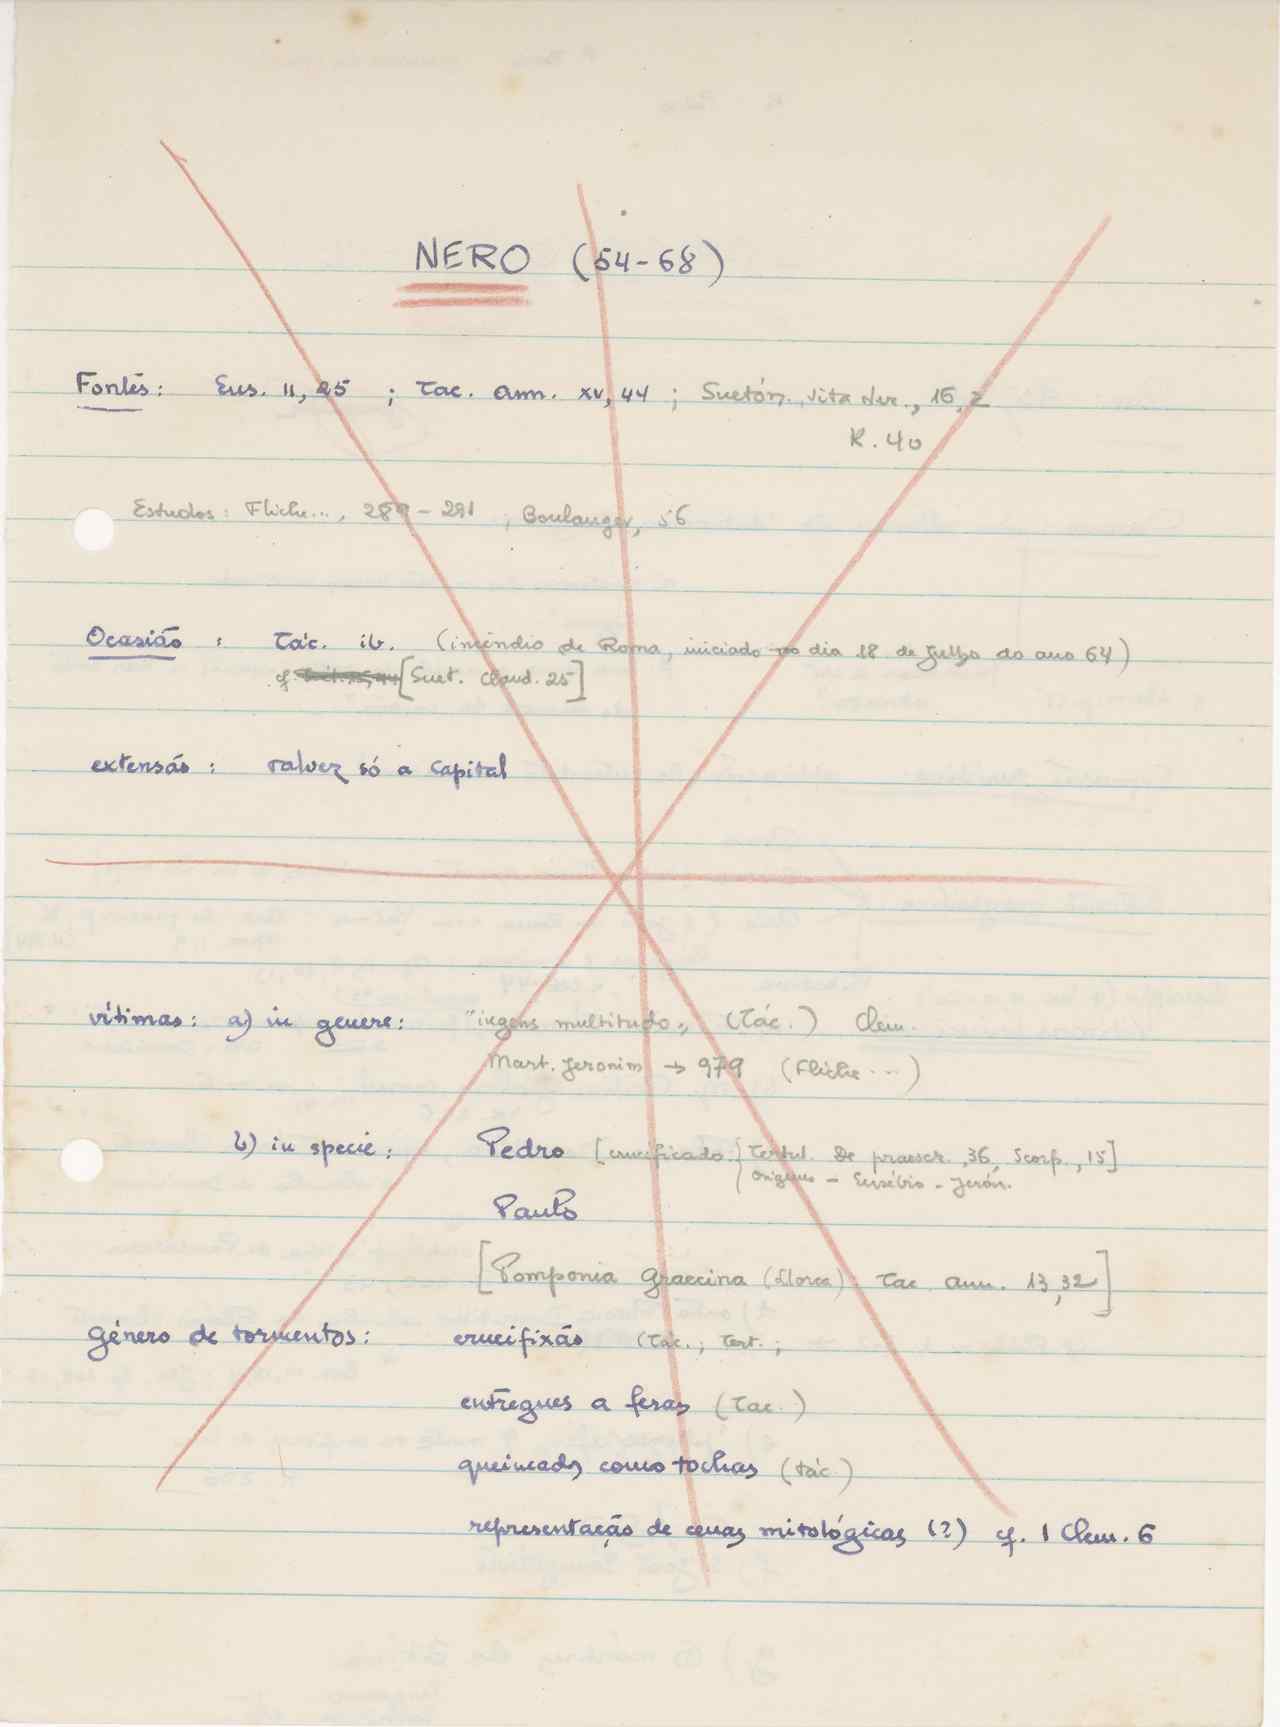 NERO (54-68)
Fontes: Eus. II, 25 ; Tac. Ann. XV, 44 ; Suetón. Vita Ner., 16, 2
K. 40
Estudos: Fliche..., 289-291 ; Boulanger, 56
Ocasião : Tác. ib. (incêndio de Roma, iniciado no dia 18 de Julho do ano 64)
cf. [Suet. Claud. 25]
extensão : talvez só a capital
vítimas: a) in genere: "ingens multitudo" (Tác.) Clem.
Mart. Jeronim → 979 (Fliche ...)
b) in specie: Pedro [crucificado (Tertul. De praescr. ,36, Scorp., 15]
Orígenes - Eusébio - Jerón.
Paulo
[Pomponia Graecina (Llorca) Tac. ann. 13,32]
género de tormentos: crucifixão (Tac.; Tert.;
entregues a feras (Tac.)
queimados como tochas (Tác.)
representação de cenas mitológicas (?) cf. 1 Clem. 6